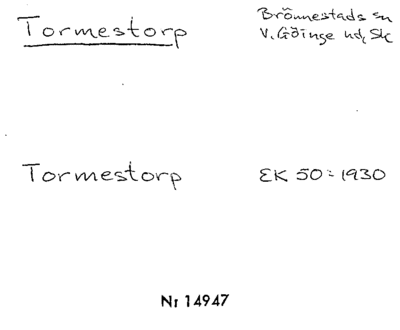 Tormestorp Brönnestads sn
V. Göinge hd, Sk
Tormestorp EK 50 : 1930
Nr 14947